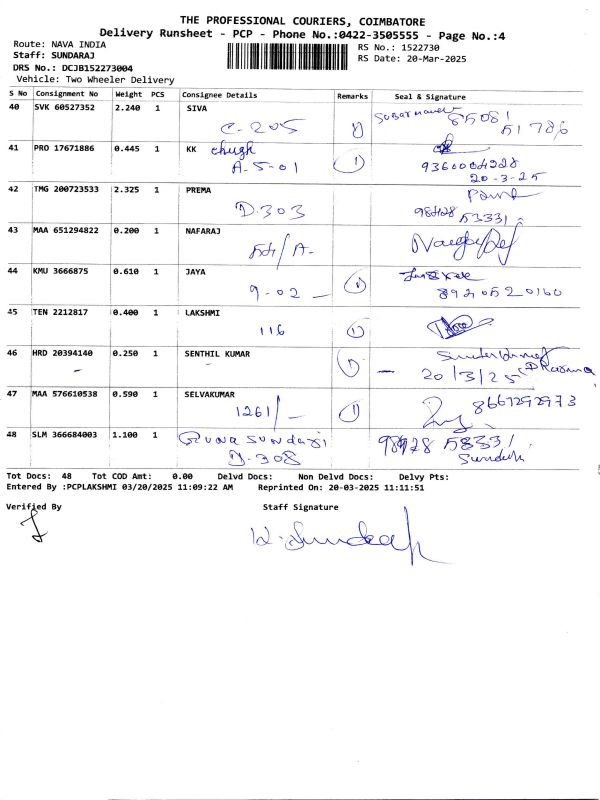 THE PROFESSIONAL COURIERS, COIMBATORE
Delivery Runsheet - PCP - Phone No.:0422-3505555 - Page No.:4
Route: NAVA INDIA
Staff: SUNDARAJ
DRS No.: DCJB152273004
Vehicle: Two Wheeler Delivery
RS No.: 1522730
RS Date: 20-Mar-2025
S No Consignment No Weight PCS Consignee Details Remarks Seal & Signature
40 SVK 60527352 2.240 1 SIVA
C-205 1
41 PRO 17671886 0.445 1 KK chugh
A-5-01 1 9360004928
20-3-25
42 TMG 200723533 2.325 1 PREMA
D.303 98428 53331
43 MAA 651294822 0.200 1 NAFARAJ
44 KMU 3666875 0.610 1 JAYA
9-02 1 8940520160
45 TEN 2212817 0.400 1 LAKSHMI
116 1
46 HRD 20394140 0.250 1 SENTHIL KUMAR
1 20/3/25
47 MAA 576610538 0.590 1 SELVAKUMAR
1261/- 1 8667292973
48 SLM 366684003 1.100 1 Guna sundari
D-308
Tot Docs: 48 Tot COD Amt: 0.00 Delvd Docs: Non Delvd Docs: Delvy Pts:
Entered By :PCPLAKSHMI 03/20/2025 11:09:22 AM Reprinted On: 20-03-2025 11:11:51
Verified By Staff Signature